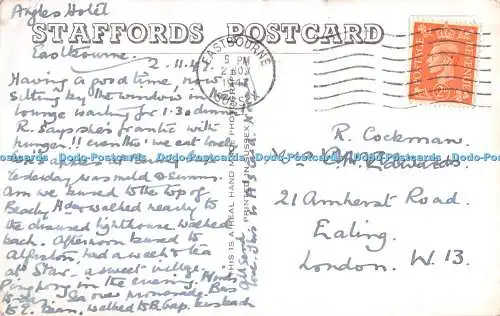 Angles Hotel
STAFFORDS POSTCARD
Eastbourne
2.11.4
EASTBOURNE
5 PM
SUSSEX
POSTAGE REVENUE
2½D
Having a good time, now
sitting by the window in
lounge waiting for 1.30 dinner
R. says she's frantic with
hunger!! even tho' we eat
Yesterday was mild & sunny.
Am we bused to the top of
Beachy Hd & walked nearly to
the disused lighthouse & walked
back. Afternoon bused to
Alfriston, had a walk & tea
at 'Star' - a sweet village.
Ping pong in the evening.
today. Sea over promenade. Bus
to E. Dean, walked to B. Gap
THIS IS A REAL HAND MADE PHOTOGRAPH
PRINTED IN SUSSEX
All send
love.
R. Cockman
Edwards
21 Amherst Road
Ealing
London. W.13.
www.Delcampe.net World Postcards Ltd